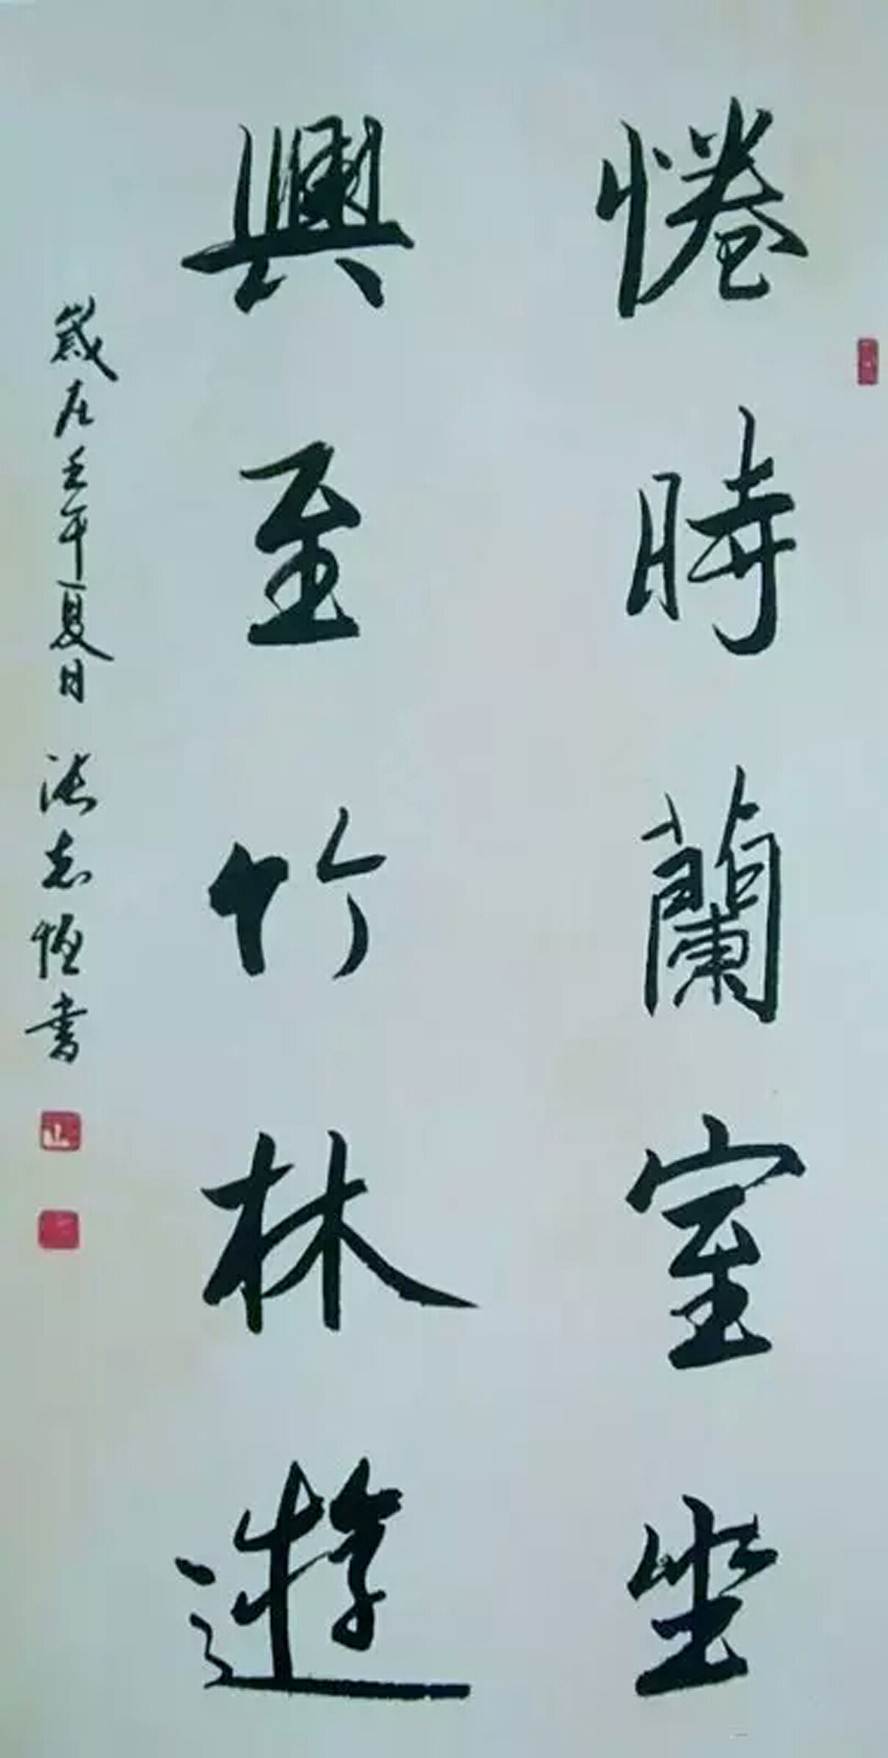 惓時蘭室坐
興至竹林遊
歲在壬午夏日 張志恆書